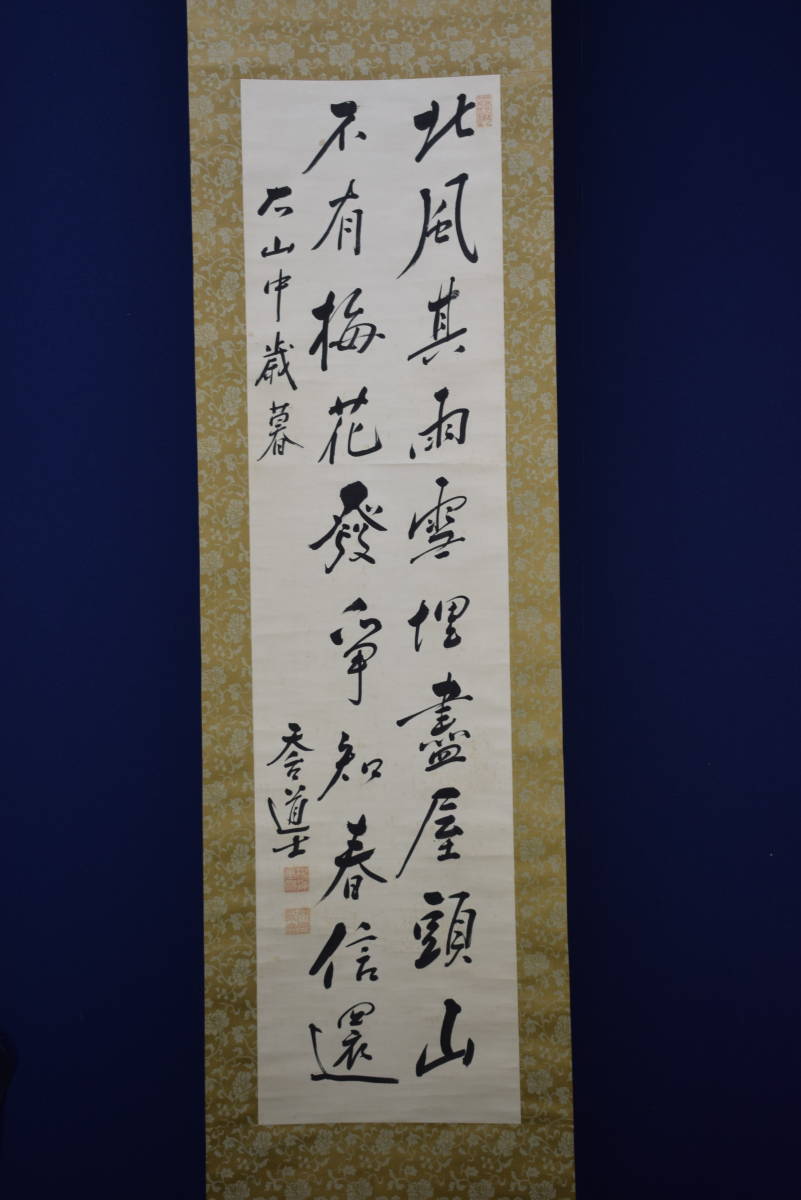 北風其雨雪埋盡屋頭山
不有梅花發爭知春信還
右山中歳暮
吞道士